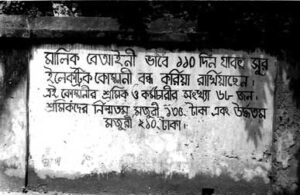 মালিক বেআইনী ভাবে ১১০ দিন যাবৎ সুর
ইলেকট্রিক কোম্পানী বন্ধ করিয়া রাখিয়াছেন।
এই কোম্পানীর শ্রমিক ও কর্মচারীর সংখ্যা ৬৮ জন।
শ্রমিকদের নিম্নতম মজুরী ১৩৫ টাকা এবং উর্দ্ধতম
মজুরী ২১০ টাকা।